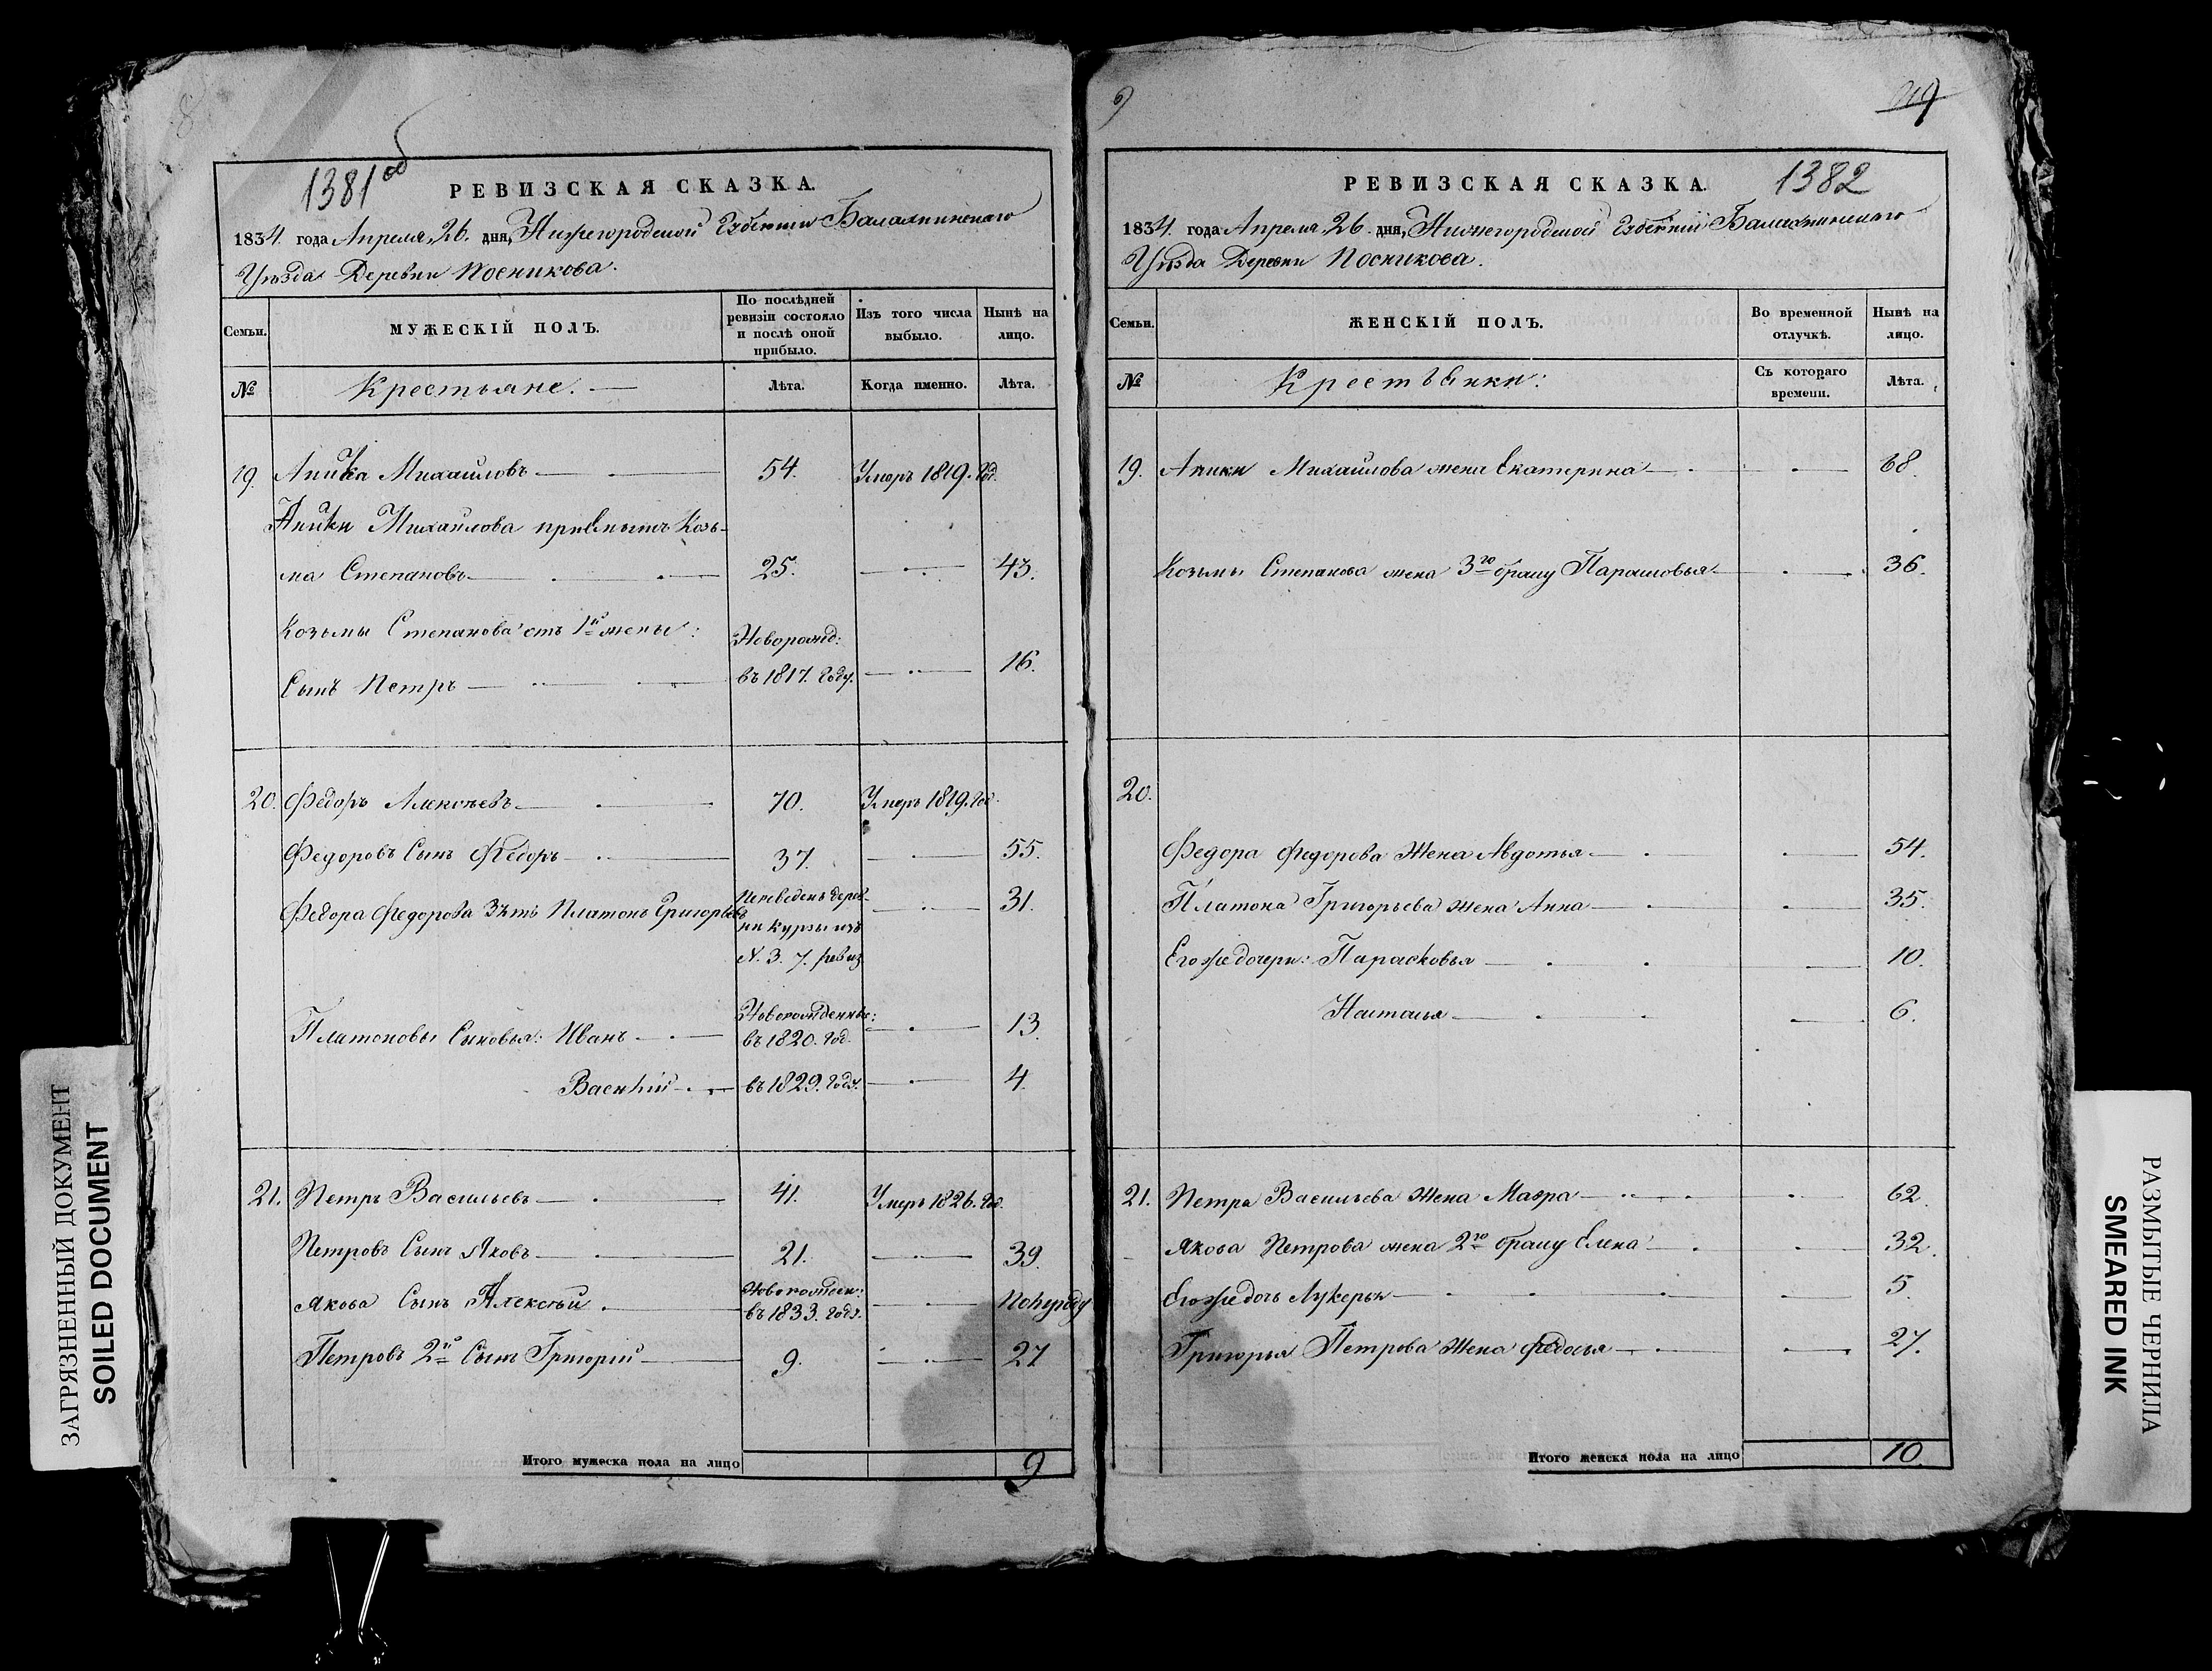 1381об
РЕВИЗСКАЯ СКАЗКА.
1834. года Апреля 26. дня, Нижегородской Губернии Балахнинскаго
Уѣзда Деревни Посникова.
Семьи.
МУЖЕСКІЙ ПОЛЪ.
По послѣдней
ревизіи состояло
и послѣ оной
прибыло.
Изъ того числа
выбыло.
Нынѣ на
лицо.
№
Крестьяне.
Лѣта.
Когда именно.
Лѣта.
19. Аника Михайловъ 54. Умеръ 1819. год.
Аники Михайлова приемышъ Козь-
ма Степановъ 25. 43.
Козьмы Степанова отъ 1й жены: Новорожд:
Сынъ Петръ въ 1817. году. 16.
20. Федоръ Алексѣевъ 70. Умеръ 1819. год.
Федоровъ Сынъ Федоръ 37. 55.
Федора Федорова Зять Платонъ Григорьевъ Переведенъ дерев- 31.
ни Курзы изъ
№. 3. 7. ревиз
Новорожденные:
Платоновы Сыновья: Иванъ въ 1820. год. 13.
Василій въ 1829. году. 4.
21. Петръ Васильевъ 41. Умеръ 1826. год.
Петровъ Сынъ Яковъ 21. 39.
Новорожден:
Якова Сынъ Алексѣй въ 1833. году. Полугоду
Петровъ 2й Сынъ Григорій 9. 27
Итого мужеска пола на лицо 9
6)
1382
РЕВИЗСКАЯ СКАЗКА.
1834. года Апреля 26. дня, Нижегородской Губерніи Балахнинскаго
Уѣзда Деревни Посникова.
Семьи.
ЖЕНСКІЙ ПОЛЪ.
Во временной
отлучкѣ.
Нынѣ на
лицо.
№
Крестьянки:
Съ котораго
времени.
Лѣта.
19. Аники Михайлова жена Екатерина 68.
Козьмы Степанова жена 3го браку Парасковья 36.
20.
Федора Федорова Жена Авдотья 54.
Платона Григорьева жена Анна 35.
Его же дочери: Парасковья 10.
Настасья 6.
21. Петра Васильева Жена Мавра 62.
Якова Петрова жена 2го браку Елена 32.
Его же дочь Лукерья 5.
Григорья Петрова Жена Федосья 27.
Итого женска пола на лицо 10.
ЗАГРЯЗНЕННЫЙ ДОКУМЕНТ
SOILED DOCUMENT
РАЗМЫТЫЕ ЧЕРНИЛА
SMEARED INK